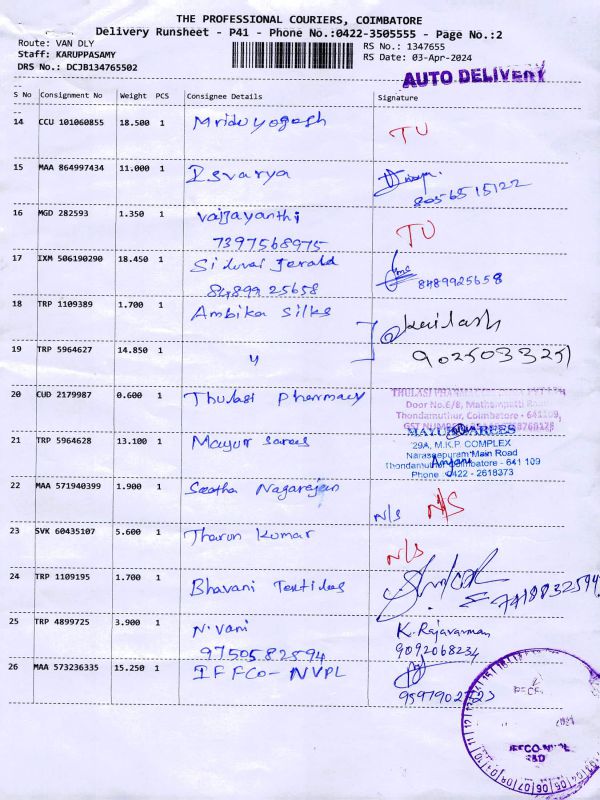 THE PROFESSIONAL COURIERS, COIMBATORE
Delivery Runsheet - P41 - Phone No.:0422-3505555 - Page No.:2
Route: VAN DLY
RS No.: 1347655
Staff: KARUPPASAMY
RS Date: 03-Apr-2024
DRS No.: DCJB134765502
AUTO DELIVERY
S No Consignment No Weight PCS Consignee Details Signature
14 CCU 101060855 18.500 1 Mriduyogesh TU
15 MAA 864997434 11.000 1 Isvarya
8056515122
16 MGD 282593 1.350 1 Vaijayanthi TU
7397568975
17 IXM 506190290 18.450 1 Jerald
8489925658 8489925658
18 TRP 1109389 1.700 1 Ambika Silks
Kailash
19 TRP 5964627 14.850 1 "
9025033251
20 CUD 2179987 0.600 1 Thulasi Pharmacy
THULASI
Door No.6/8, Mathampatti Road
Thondamuthur, Coimbatore - 641109,
GST NUM
21 TRP 5964628 13.100 1 Mayur Sarees
MAYUR SAREES
29A, M.K.P. COMPLEX
Narasapuram Main Road
Thondamuthur Coimbatore - 641 109
Phone : 0422 - 2618373
22 MAA 571940399 1.900 1 Nagarajan N/S N/S
23 SVK 60435107 5.600 1 Tharun Kumar N/S
24 TRP 1109195 1.700 1 Bhavani Textiles
7418832594
25 TRP 4899725 3.900 1 N. Vani K. Rajavarman
9750582594 9092068234
26 MAA 573236335 15.250 1 IFFCO - NVPL